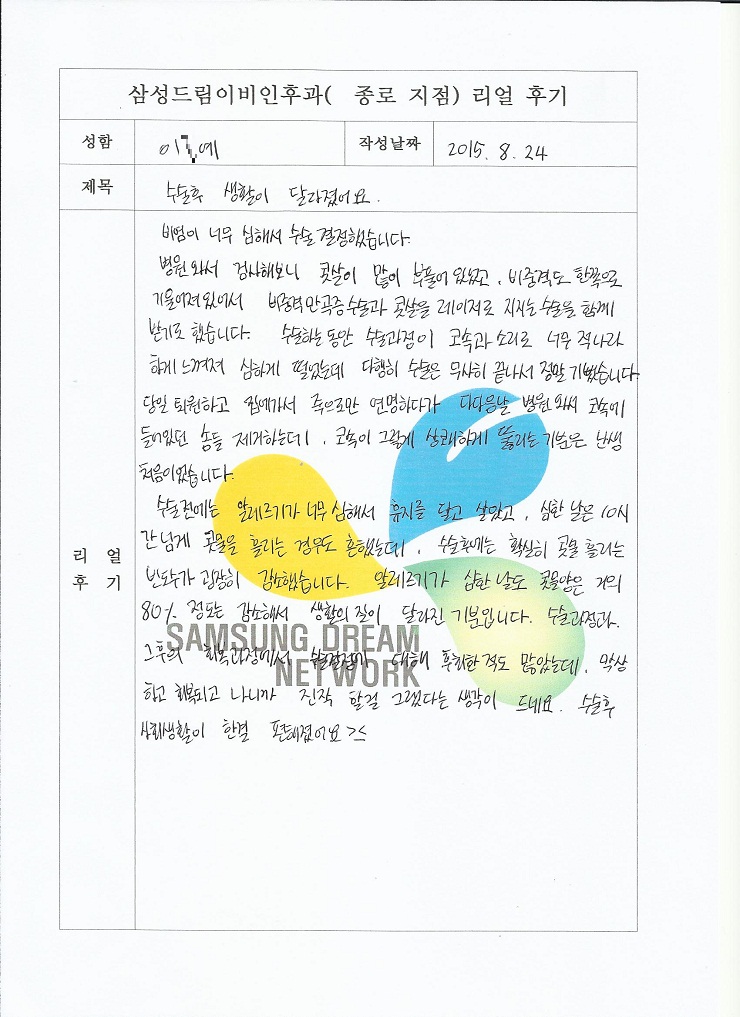 삼성드림이비인후과( 종로 지점) 리얼 후기
성함 이 예 작성날짜 2015. 8. 24
제목 수술후 생활이 달라졌어요.
비염이 너무 심해서 수술 결정했습니다.
병원 와서 검사해보니 콧살이 많이 부풀어 있었고, 비중격도 한쪽으로
기울어져있어서 비중격만곡증수술과 콧살을 레이저로 지지는 수술을 함께
받기로 했습니다. 수술하는 동안 수술과정이 코속과 소리로 너무 적나라
하게 느껴져 심하게 떨었는데 다행히 수술은 무사히 끝나서 정말 기뻤습니다.
당일 퇴원하고 집에가서 죽으로만 연명하다가 다다음날 병원 와서 코속에
들어있던 솜들 제거하는데, 코속이 그렇게 상쾌하게 뚫리는 기분은 난생
처음이었습니다.
수술전에는 알레르기가 너무 심해서 휴지를 달고 살았고, 심한 날은 10시
간 넘게 콧물을 흘리는 경우도 흔했는데, 수술후에는 확실히 콧물 흘리는
빈도수가 굉장히 감소했습니다. 알레르기가 심한 날도 콧물양은 거의
80% 정도는 감소해서 생활의 질이 달라진 기분입니다. 수술과정과.
그후의 회복과정에서 수술결정에 대해 후회한적도 많았는데, 막상
하고 회복되고 나니까 진작 할걸 그랬다는 생각이 드네요. 수술후
사회생활이 한결 편해졌어요 ><
리 얼
후 기
SAMSUNG DREAM
NETWORK